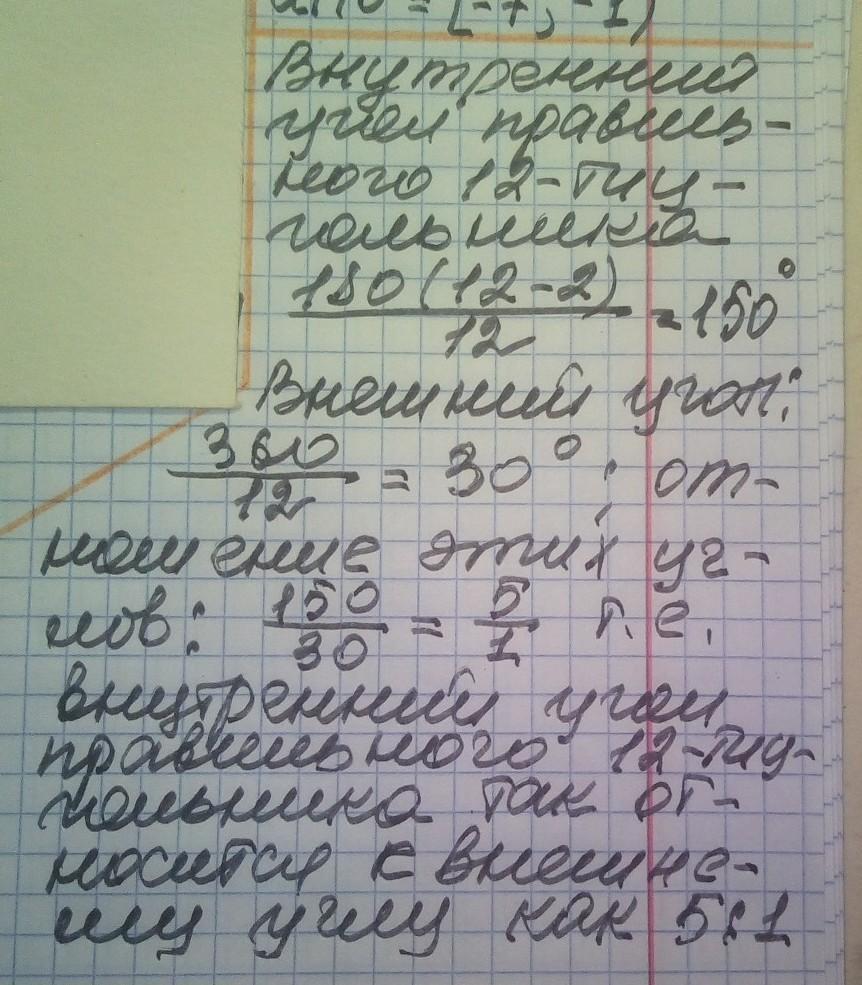 = [-7; -1)
Внутренний
угол правиль-
ного 12-тиу-
гольника
180(12-2)/12 = 150°
Внешний угол:
360/12 = 30°; от-
ношение этих уг-
лов: 150/30 = 5/1 т.е.
внутренний угол
правильного 12-тиу-
гольника так от-
носится к внешне-
му углу как 5:1